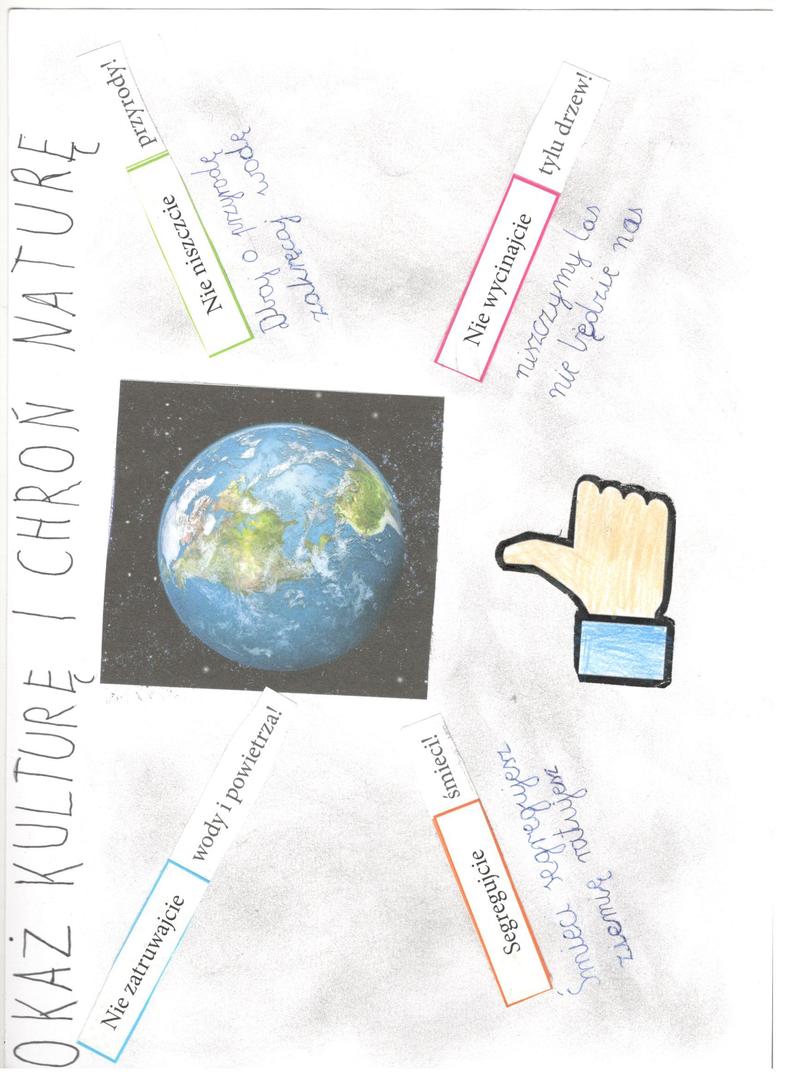 OKAŻ KULTURĘ I CHROŃ NATURĘ
Nie zatruwajcie wody i powietrza!
Nie niszczcie przyrody!
Dbaj o przyrodę
zakręcaj wodę
Segregujcie śmieci!
Śmieci segregujesz
ziemię ratujesz
Nie wycinajcie tylu drzew!
niszczymy las
nie będzie nas